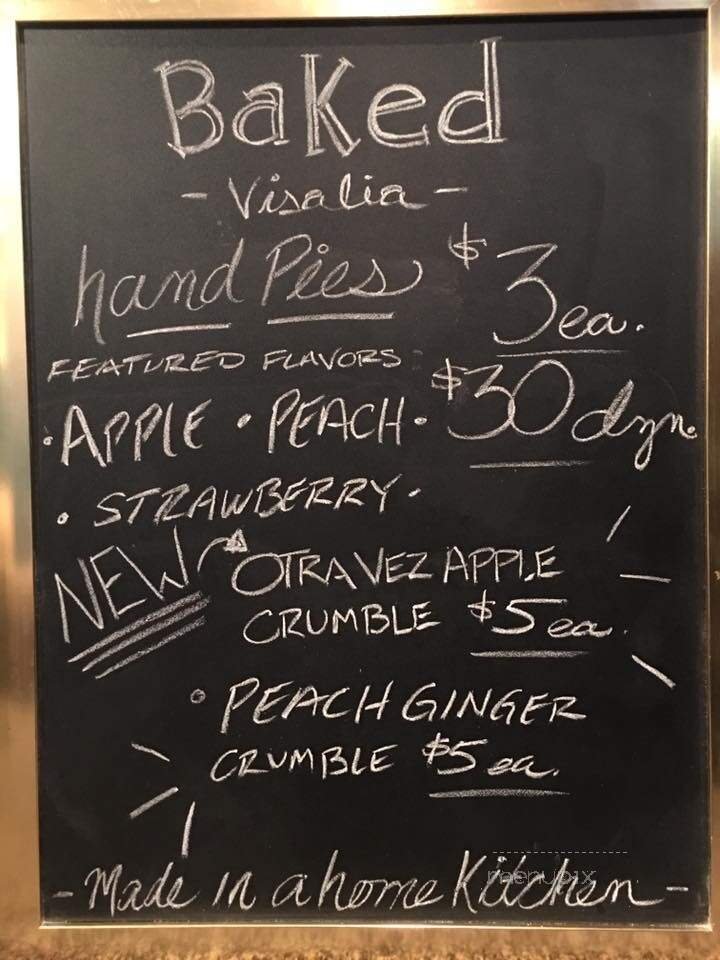 Baked
- Visalia -
hand Pies $3 ea.
FEATURED FLAVORS:
• APPLE • PEACH • $30 dzn.
• STRAWBERRY •
NEW OTRA VEZ APPLE
CRUMBLE $5 ea.
• PEACH GINGER
CRUMBLE $5 ea.
- Made in a home Kitchen -
menupix